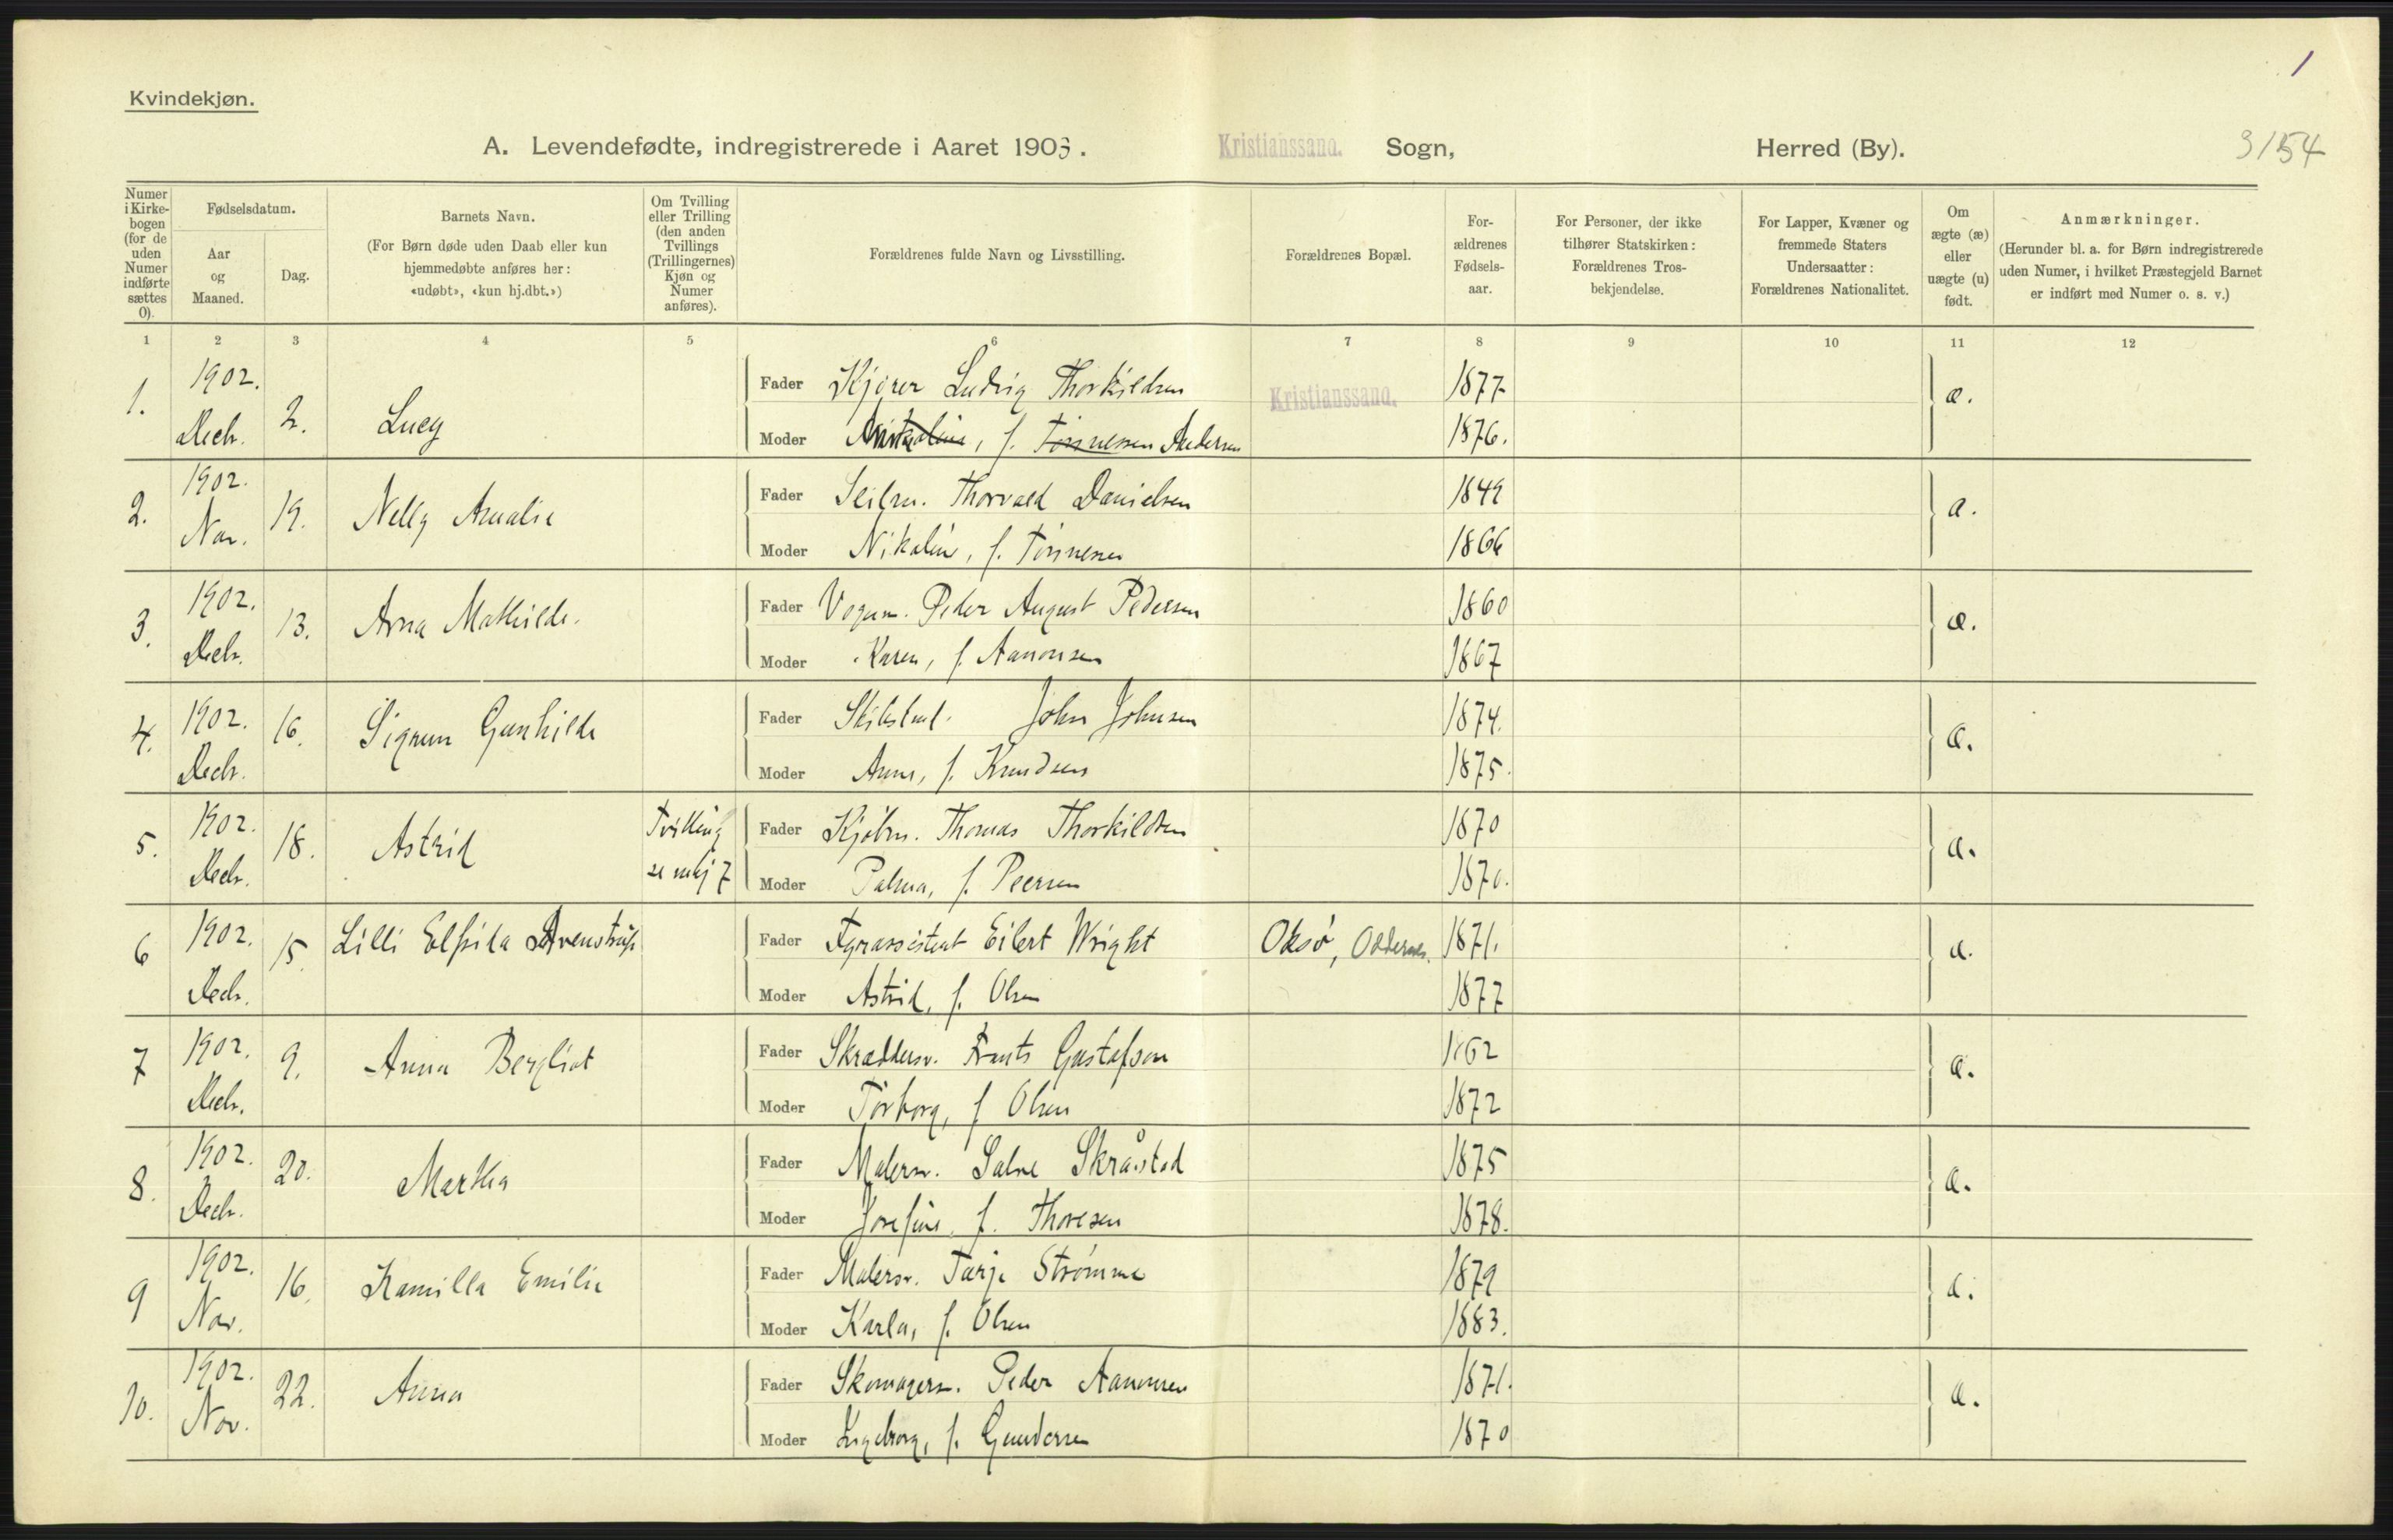 1
Kvindekjøn.
A. Levendefødte, indregistrerede i Aaret 1903. Kristianssand. Sogn, Herred (By). 3154
Numer i Kirkebogen (for de uden Numer indførte sættes 0).
Fødselsdatum.
Aar og Maaned.
Dag.
Barnets Navn.
(For Børn døde uden Daab eller kun hjemmedøbte anføres her: «udøbt», «kun hj.dbt.»)
Om Tvilling eller Trilling (den anden Tvillings (Trillingernes) Kjøn og Numer anføres).
Forældrenes fulde Navn og Livsstilling.
Forældrenes Bopæl.
Forældrenes Fødselsaar.
For Personer, der ikke tilhører Statskirken: Forældrenes Trosbekjendelse.
For Lapper, Kvæner og fremmede Staters Undersaatter: Forældrenes Nationalitet.
Om ægte (æ) eller uægte (u) født.
Anmærkninger.
(Herunder bl. a. for Børn indregistrerede uden Numer, i hvilket Præstegjeld Barnet er indført med Numer o. s. v.)
1 2 3 4 5 6 7 8 9 10 11 12
1. 1902. Decb. 2. Lucy Fader Kjører Ludvig Thorkildsen Kristianssand. 1877 æ.
Moder f. Tønnesen Andersen 1876.
2. 1902. Nov. 19. Nelly Amalie Fader Thorvald Danielsen 1849 æ.
Moder Nikoline, f. Tønnesen 1866
3. 1902. Decb. 13. Anna Mathilde. Fader Vognm. Peder August Pedersen 1860 æ.
Moder Karen, f. Aanonsen 1867
4. 1902. Decb. 16. Sigrun Gunhilde Fader John Johnsen 1874. æ.
Moder Anna, f. Knudsen 1875.
5. 1902. Decb. 18. Astrid Tvilling 7 Fader Kjøbm. Thomas Thorkildsen 1870 æ.
Moder Palma, f. Peersen 1870.
6 1902. Decb. 15. Lilli Elfrida Avenstrup Fader Fyrassistent Eilert Wright Oksø, Oddernes. 1871. æ.
Moder Astrid, f. Olsen 1877
7 1902. Decb. 9. Anna Bergliot Fader Skræddersv. Frants Gustafson 1862 æ.
Moder Torborg, f Olsen 1872
8. 1902. Decb. 20. Martha Fader Malersv. Salve Skråstad 1875 æ.
Moder Josefine, f. Thoresen 1878.
9 1902. Nov. 16. Kamilla Emilie Fader Malersv. Tarje Strømme 1879 æ.
Moder Karla, f. Olsen 1883.
10. 1902. Nov. 22. Anna Fader Skomagersv. Peder Aanonsen 1871. æ.
Moder Ingeborg, f. Gundersen 1870